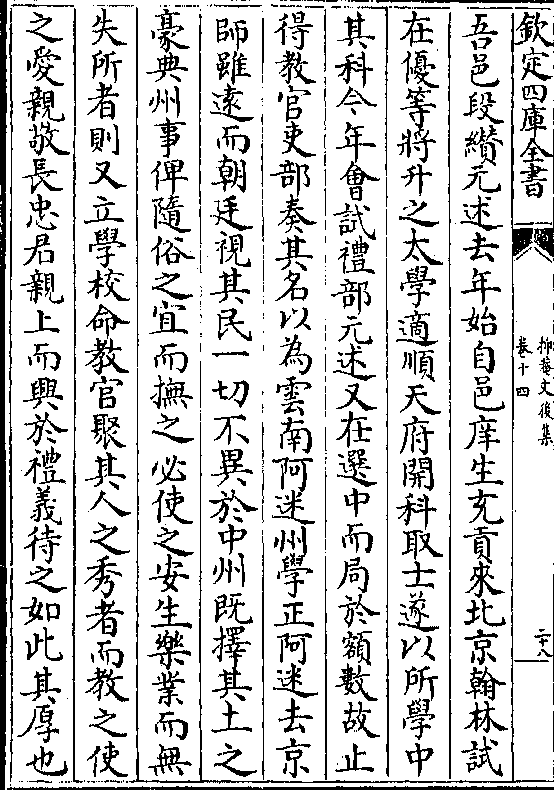 欽定四庫全書
抑菴文後集
卷十四
二十八
吾邑段纘元述去年始自邑庠生充貢來北京翰林試
在優等將升之太學適順天府開科取士遂以所學中
其科今年會試禮部元述又在選中而局於額數故止
得教官吏部奏其名以為雲南阿迷州學正阿迷去京
師雖遠而朝廷視其民一切不異於中州既擇其土之
豪典州事俾隨俗之宜而撫之必使之安生樂業而無
失所者則又立學校命教官聚其人之秀者而教之使
之愛親敬長忠君親上而興於禮義待之如此其厚也